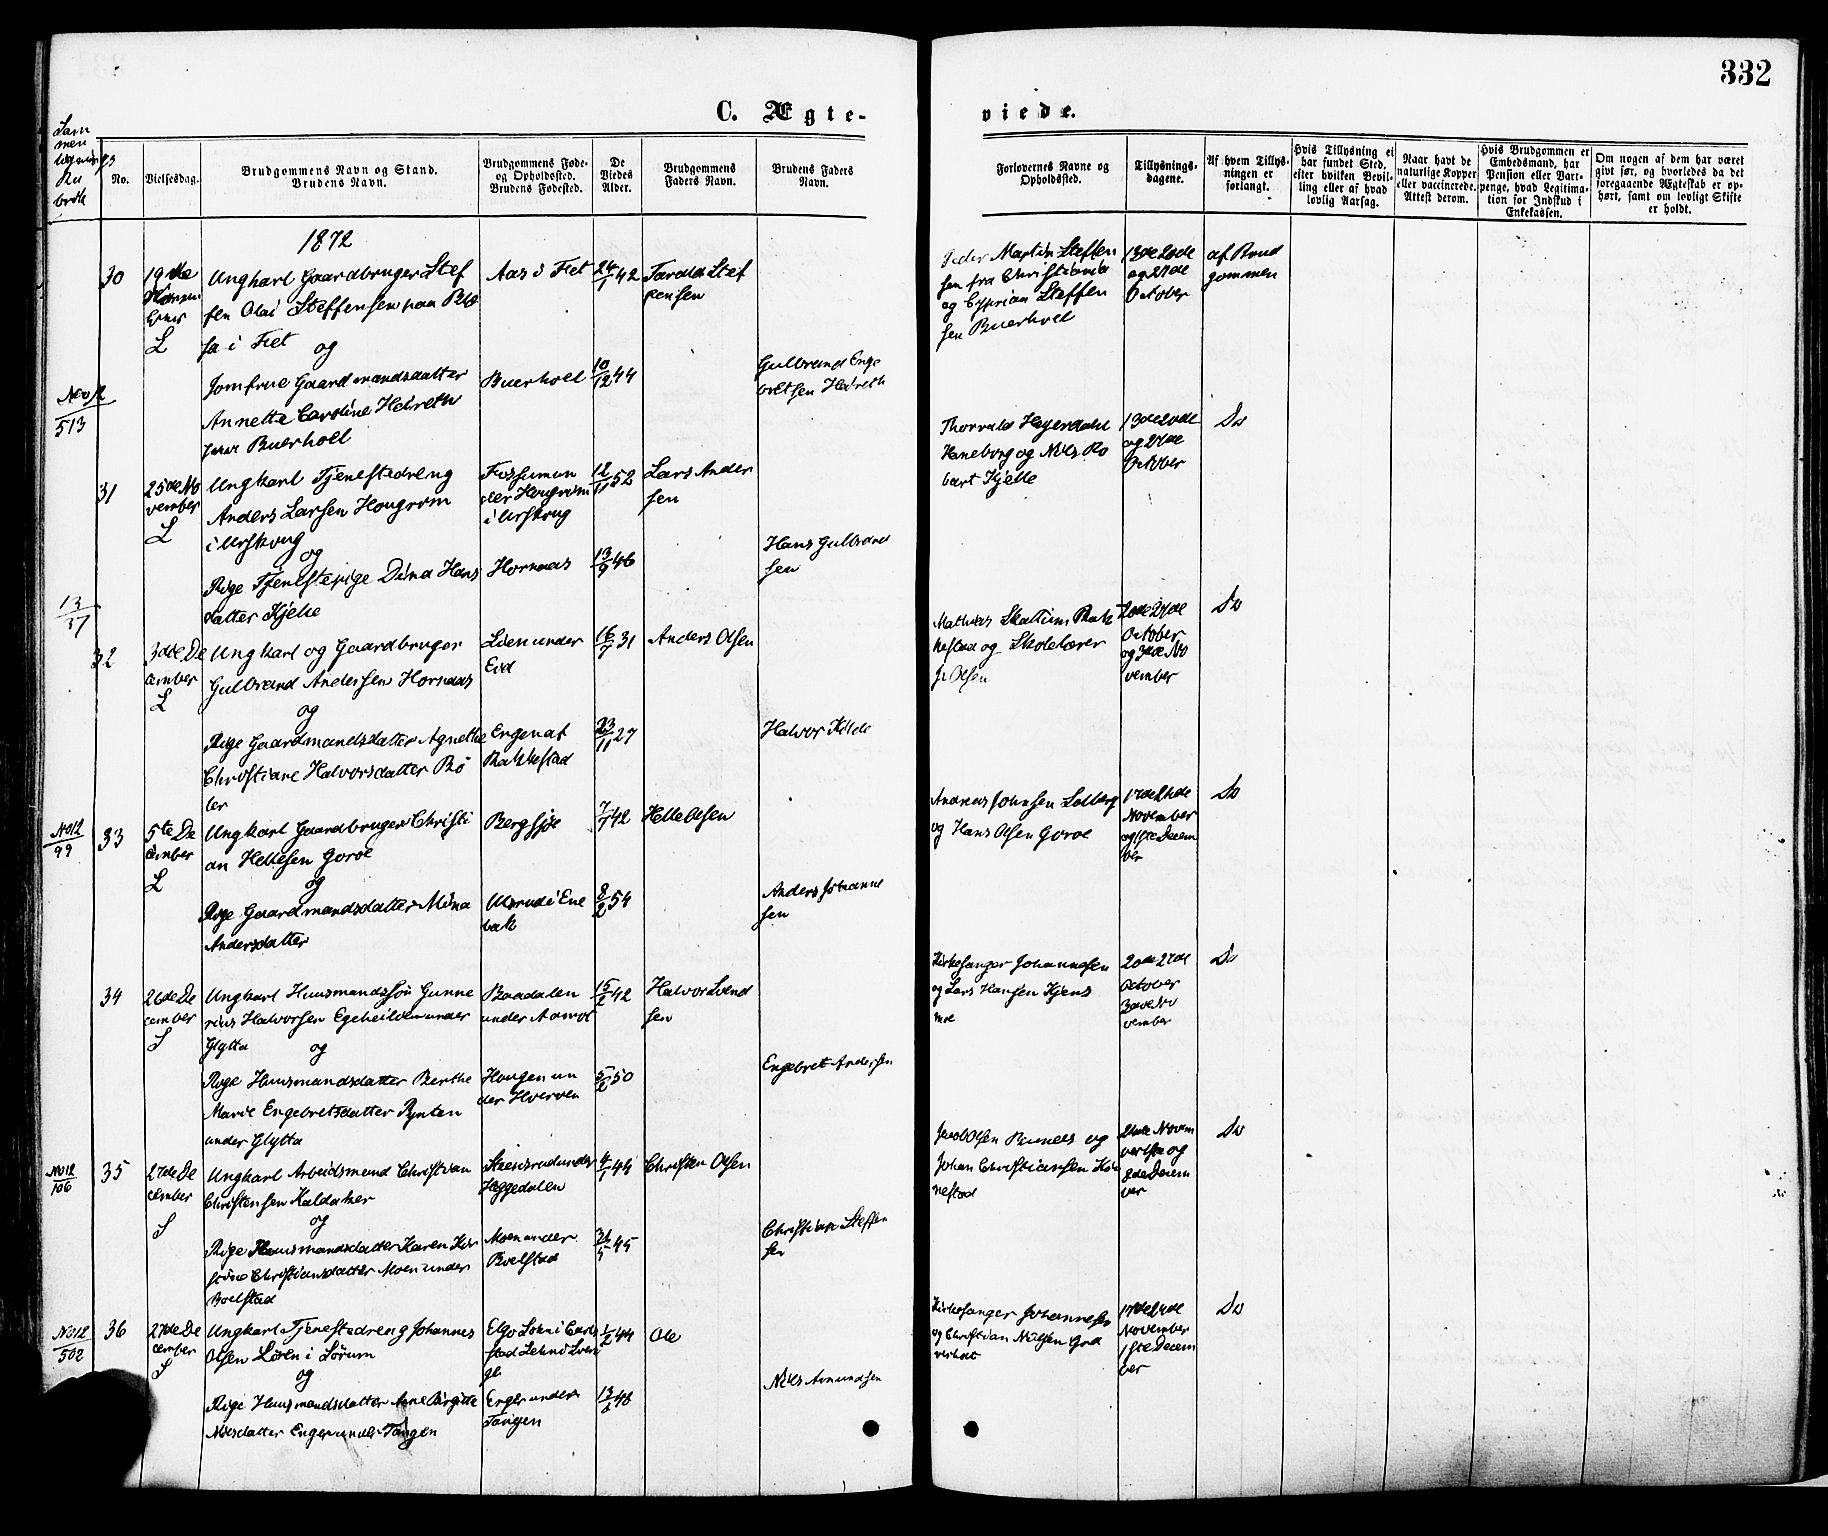 332
C. Ægte-
viede.
Sam
men
No.
Vielsesdag.
Brudgommens Navn og Stand.
Brudens Navn.
Brudgommens Føde-
og Opholdssted.
Brudens Fødested.
De
Viedes
Alder.
Brudgommens
Faders Navn.
Brudens Faders
Navn.
Forlovernes Navne og
Opholdssted.
Tillysnings-
dagene.
Af hvem Tillys-
ningen er
forlangt.
Hvis Tillysning ei
har fundet Sted,
efter hvilken Bevil-
ling eller af hvad
lovlig Aarsag.
Naar havt de
naturlige Kopper
eller vaccinerede.
Attest derom.
Hvis Brudgommen er
Embedsmand, har
Pension eller Vart-
penge, hvad Legitima-
tion for Indskud i
Enkekassen.
Om nogen af dem har været
givt før, og hvorledes da det
foregaaende Ægteskab er op-
hørt, samt om lovligt Skifte
er holdt.
1872
30
19de
Novem
ber
L
Ungkarl Gaardbruger Stef
fen Olai Steffensen paa
sa i Fet
og
Jomfrue Gaardmandsdatter
Annette Caroline Heireth
Buerhol
Aas i Fet
Buerhoel
24/1 42
10/12 44
Tarald Stef
fensen
Gulbrand Enge
bretsen Heireth
Peder Martin Steffen
sen fra Christiania
og Cyprian Steffen
sen Buerhoel
13de 20de
og 27de
October
af Brud
gommen
No 12
513
31
25de No
vember
L
Ungkarl Tjenestedreng
Anders Larsen Hougrim
i Urskoug
og
Pige Tjenestepige Dina Hans
datter Kjelle
Fossum un
der Hougrim
i Urskoug
Hornaas
12/11 52
13/9 46
Lars Ander
sen
Hans Gulbrand
sen
Thorvald Heyerdahl
Haneborg og Niels Ro
bart Kjelle
13de 20de
og 27de
October
Do
13
37
32
3die De
cember
L
Ungkarl og Gaardbruger
Gulbrand Andersen Hornaas
og
Pige Gaardmandsdatter Agnethe
Christiane Halvorsdatter Bø
ler
Lien under
Eid
Engen af
Bakkestad
16/7 31
23/11 27
Anders Olsen
Halvor Kilde
Mathias Skattum Bak
kestad og Skolelærer
Olsen
20de 27de
October
og 3die No
vember
Do
No 12
99
33
5te De
cember
L
Ungkarl Gaardbruger Christi
an Hellesen Goroe
og
Pige Gaardmandsdatter Mina
Andersdatter
Bergsjøe
Ulsrud i Ene
bak
7/7 42
8/2 54
Helle Olsen
Anders Johanne
sen
Andreas Johnsen Solberg
og Hans Olsen Goroe
17de 24de
November
og 1ste Decem
ber
Do
34
26de De
cember
S
Ungkarl Huusmandssøn Gunne
rius Halvorsen Egeheilden under
Glytta
og
Pige Huusmandsdatter Berthe
Marie Engebretsdatter Rynten
under Glytta
Baadalen
under Aamot
Hougen un
der Hverven
15/2 42
5/2 50
Halvor Svend
sen
Engebret Andersen
Kirkesanger Johannesen
og Lars Hansen Kjens
moe
20de 27de
October
3die No
vember
Do
No 12
106
35
27de De
cember
S
Ungkarl Arbeidsmand Christian
Christensen Kaldaker
og
Pige Huusmandsdatter Karen Kir
stine Christiansdatter Moen under
Boelstad
Steensrud under
Heggedalen
Moen under
Boelstad
4/1 44
21/5 45
Christen Olsen
Christian Steffen
sen
Jacob Olsen Bunæs og
Johan Christiansen Ko
nestad
24de Novem
ber 1ste og
8de Decem
ber
Do
No 12
502
36
27de De
cember
S
Ungkarl Tjenestedreng Johannes
Olsen Løren i Sørum
og
Pige Huusmandsdatter Anne Birgitte
Nilsdatter Enger under Tangen
Elgo Sokn i Carl
stad Lehn i Sveri
ge
Enger under
Tangen
1/2 44
13/6 48
Ole
Niels Amundsen
Kirkesanger Johannesen
og Christian Nielsen God
verholt
17de 24de
November
1ste Decem
ber
Do